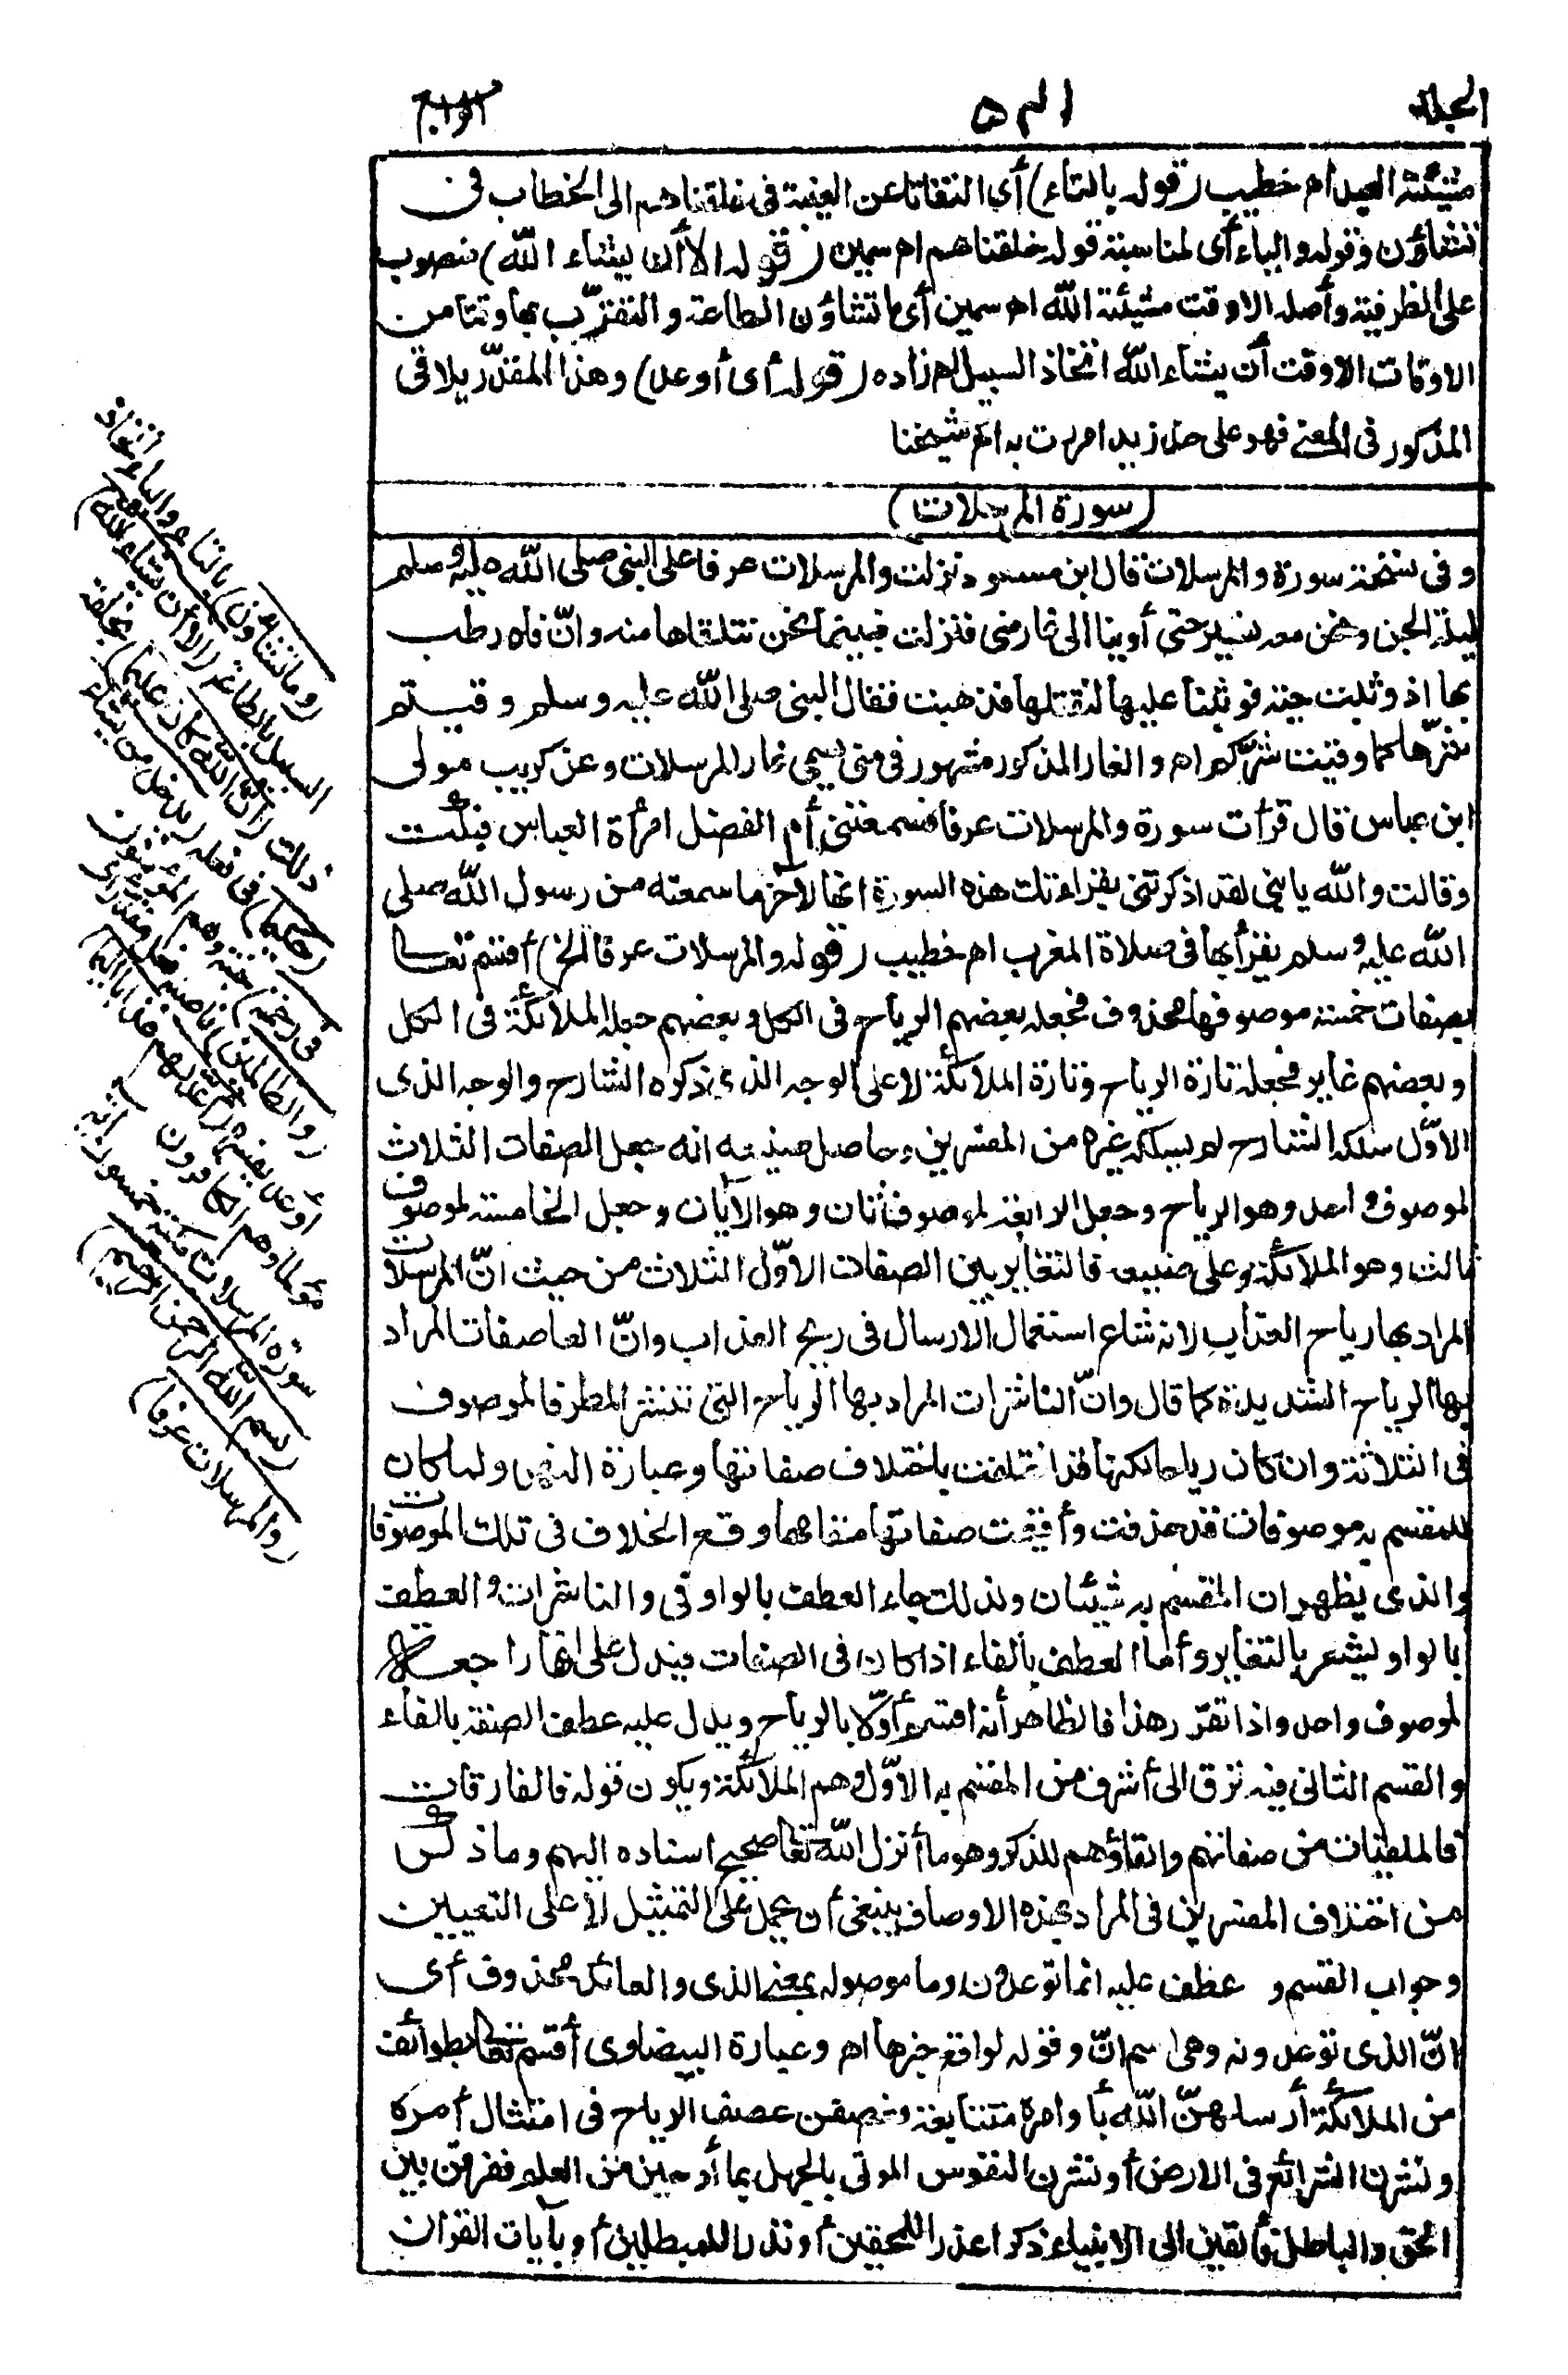 الجلد
الرابع
مشيئة العبد اه خطيب (قوله بالتاء) أي التفاتا عن الغيبة في خلقناهم الى الخطاب في
تشاؤن وقوله والياء أي لمناسبة قوله خلقناهم اه سمين (قوله الا أن يشاء الله) منصوب
على الظرفية وأصله الا وقت مشيئة الله اه سمين أي ما تشاؤن الطاعة والتقرّب بها وقتا من
الاوقات الا وقت أن يشاء الله اتخاذ السبيل اه زاده (قوله أي أوعد) وهذا المقدّر يلاقي
المذكور في المعنى فهو على حد زيدا مررت به اه شيخنا
(سورة المرسلات)
وفي نسخة سورة والمرسلات قال ابن مسعود نزلت والمرسلات عرفا على النبي صلى الله عليه وسلم
ليلة الجن ونحن معه نسير حتى أوينا الى غار منى فنزلت فبينما نحن نتلقاها منه وانّ فاه رطب
بها اذ وثبت حية فوثبنا عليها لنقتلها فذهبت فقال النبي صلى الله عليه وسلم وقيتم
شرّها كما وقيت شرّكم اه والغار المذكور مشهور في منى يسمى غار المرسلات وعن كريب مولى
ابن عباس قال قرأت سورة والمرسلات عرفا فسمعتني أم الفضل امرأة العباس فبكت
وقالت والله يا بني لقد اذكرتني بقراءتك هذه السورة انها لآخر ما سمعته من رسول الله صلى
الله عليه وسلم يقرأ بها في صلاة المغرب اه خطيب (قوله والمرسلات عرفا الخ) أقسم تعالى
بصفات خمسة موصوفها محذوف فجعله بعضهم الرياح في الكل وبعضهم جعله الملائكة في الكل
وبعضهم غاير فجعله تارة الرياح وتارة الملائكة لا على الوجه الذي ذكره الشارح والوجه الذي
الاوّل سلكه الشارح لم يسلكه غيره من المفسرين وحاصل صنيعه انه جعل الصفات الثلاث
لموصوف واحد وهو الرياح وجعل الرابعة لموصوف ثان وهو الآيات وجعل الخامسة لموصوف
ثالث وهو الملائكة وعلى صنيعه فالتغاير بين الصفات الاوّل الثلاث من حيث انّ المرسلات
المراد بها رياح العذاب لانه شاع استعمال الارسال في ريح العذاب وانّ العاصفات المراد
بها الرياح الشديدة كما قال وانّ الناشرات المراد بها الرياح التي تنشر المطر فالموصوف
في الثلاثة وان كان رياحا لكنها قد اختلفت باختلاف صفاتها وعبارة النهر ولما كان
للمقسم به موصوفات قد حذفت وأقيمت صفاتها مقامها وقع الخلاف في تلك الموصوفات
والذي يظهر ان المقسم به شيئان ولذلك جاء العطف بالواو في والناشرات والعطف
بالواو يشعر بالتغاير وأما العطف بالفاء اذا كان في الصفات فيدل على انها راجعة
لموصوف واحد واذا تقرّر هذا فالظاهر أنه اقسم أوّلا بالرياح ويدل عليه عطف الصفة بالفاء
والقسم الثاني فيه ترق الى أشرف من المقسم به الاوّل وهم الملائكة ويكون قوله فالفارقات
فالملقيات من صفاتهم والقاؤهم للذكر وهو ما أنزل الله تعالى صحيح اسناده اليهم وما ذكر
من اختلاف المفسرين في المراد بهذه الاوصاف ينبغي أن يحمل على التمثيل لا على التعيين
وجواب القسم و عطف عليه انما توعدون وما موصوله بمعنى الذي والعائد محذوف أي
انّ الذي توعدونه وهي اسم انّ وقوله لواقع خبرها اه وعبارة البيضاوي أقسم تعالى بطوائف
من الملائكة أرسلهنّ الله بأوامره متتابعة وعصفن عصف الرياح في امتثال أمره
ونشرن الشرائع في الارض أو نشرن النفوس الموتى بالجهل بما أوحين من العلم ففرقن بين
الحق والباطل وألقين الى الانبياء ذكرا عذرا للمحقين أو نذرا للمبطلين أو بآيات القرآن
(وما تشاؤن) بالتاء والياء اتخاذ
السبيل بالطاعة (الا أن يشاء الله)
ذلك (انّ الله كان عليما) بخلقه
(حكيما) في فعله (يدخل من يشاء
في رحمته) جنته وهم المؤمنون
(والظالمين) ناصبه فعل مقدر أي
أوعد يفسره (أعدّ لهم عذابا أليما)
مؤلما وهم الكافرون
سورة المرسلات مكية خمسون آية
(بسم الله الرحمن الرحيم)
(والمرسلات عرفا)